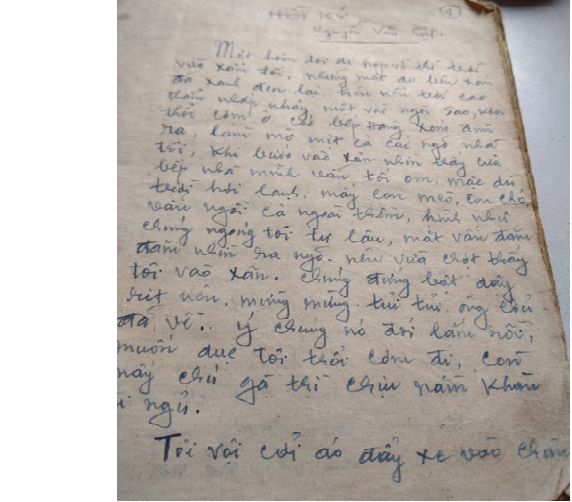 Hồi ký
1
Nguyễn Văn Cật.
Một hôm tôi đi họp về thì trời
vừa xẩm tối, những mặt ao bên xóm
đã xanh đen lại, trên nền trời cao
thẳm nhấp nháy một vài ngôi sao, khói
thổi cơm ở các bếp hàng xóm đùn
ra, làm mờ mịt cả cái ngõ nhà
tôi, khi bước vào sân nhìn thấy cửa
bếp nhà mình vẫn tối om, mặc dù
trời hơi lạnh, mấy con mèo, con chó
vẫn ngồi cả ngoài thềm, hình như
chúng ngóng tôi từ lâu, mắt vẫn đăm
đăm nhìn ra ngõ. nên vừa chợt thấy
tôi vào sân. chúng đứng bật dậy
rít nên. mừng mừng tủi tủi, ông chủ
đã về.. ý chúng nó đói lắm rồi,
muốn dục tôi thổi cơm đi, còn
mấy chú gà thì chịu nằm khàn
đi ngủ.
Tôi vội cởi áo đẩy xe vào